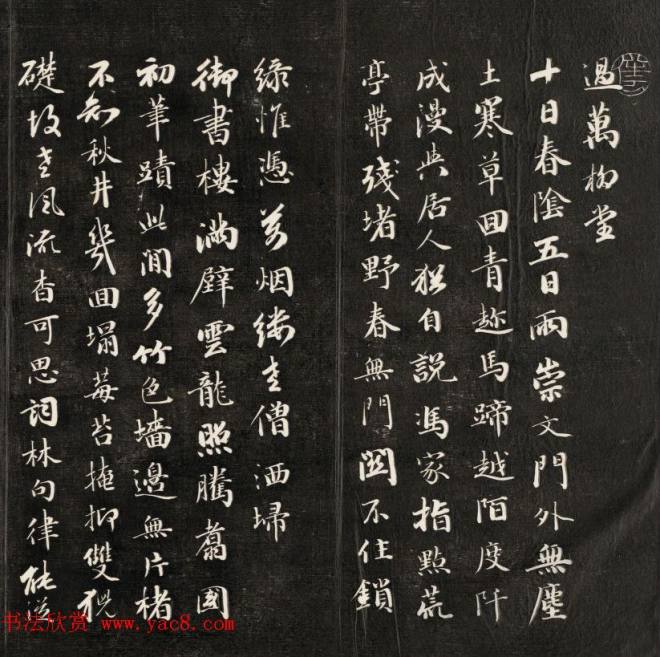 過萬柳堂
十日春陰五日雨崇文門外無塵
土寒草回青趂馬蹄越陌度阡
成漫與居人猶自說馮家指點荒
亭帶殘堵野春無門關不住鎖
綠惟憑万烟縷老僧洒埽
御書樓滿壁雲龍照騰翥國
初筆蹟此間多竹色墻邊無片楮
不知秋井幾回塌莓苔掩抑雙
礎故老風流杳可思詞林句律
书法欣赏 www.yac8.com